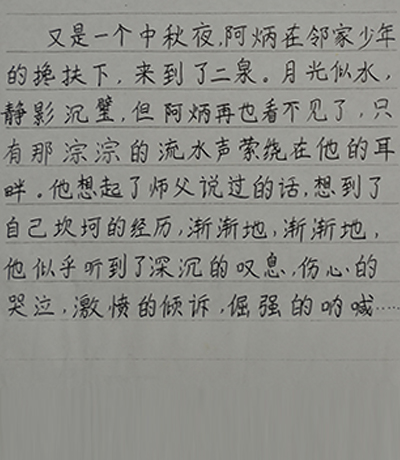 又是一个中秋夜,阿炳在邻家少年
的搀扶下，来到了二泉。月光似水，
静影沉璧，但阿炳再也看不见了，只
有那淙淙的流水声萦绕在他的耳
畔。他想起了师父说过的话,想到了
自己坎坷的经历,渐渐地,渐渐地，
他似乎听到了深沉的叹息,伤心的
哭泣,激愤的倾诉,倔强的呐喊……